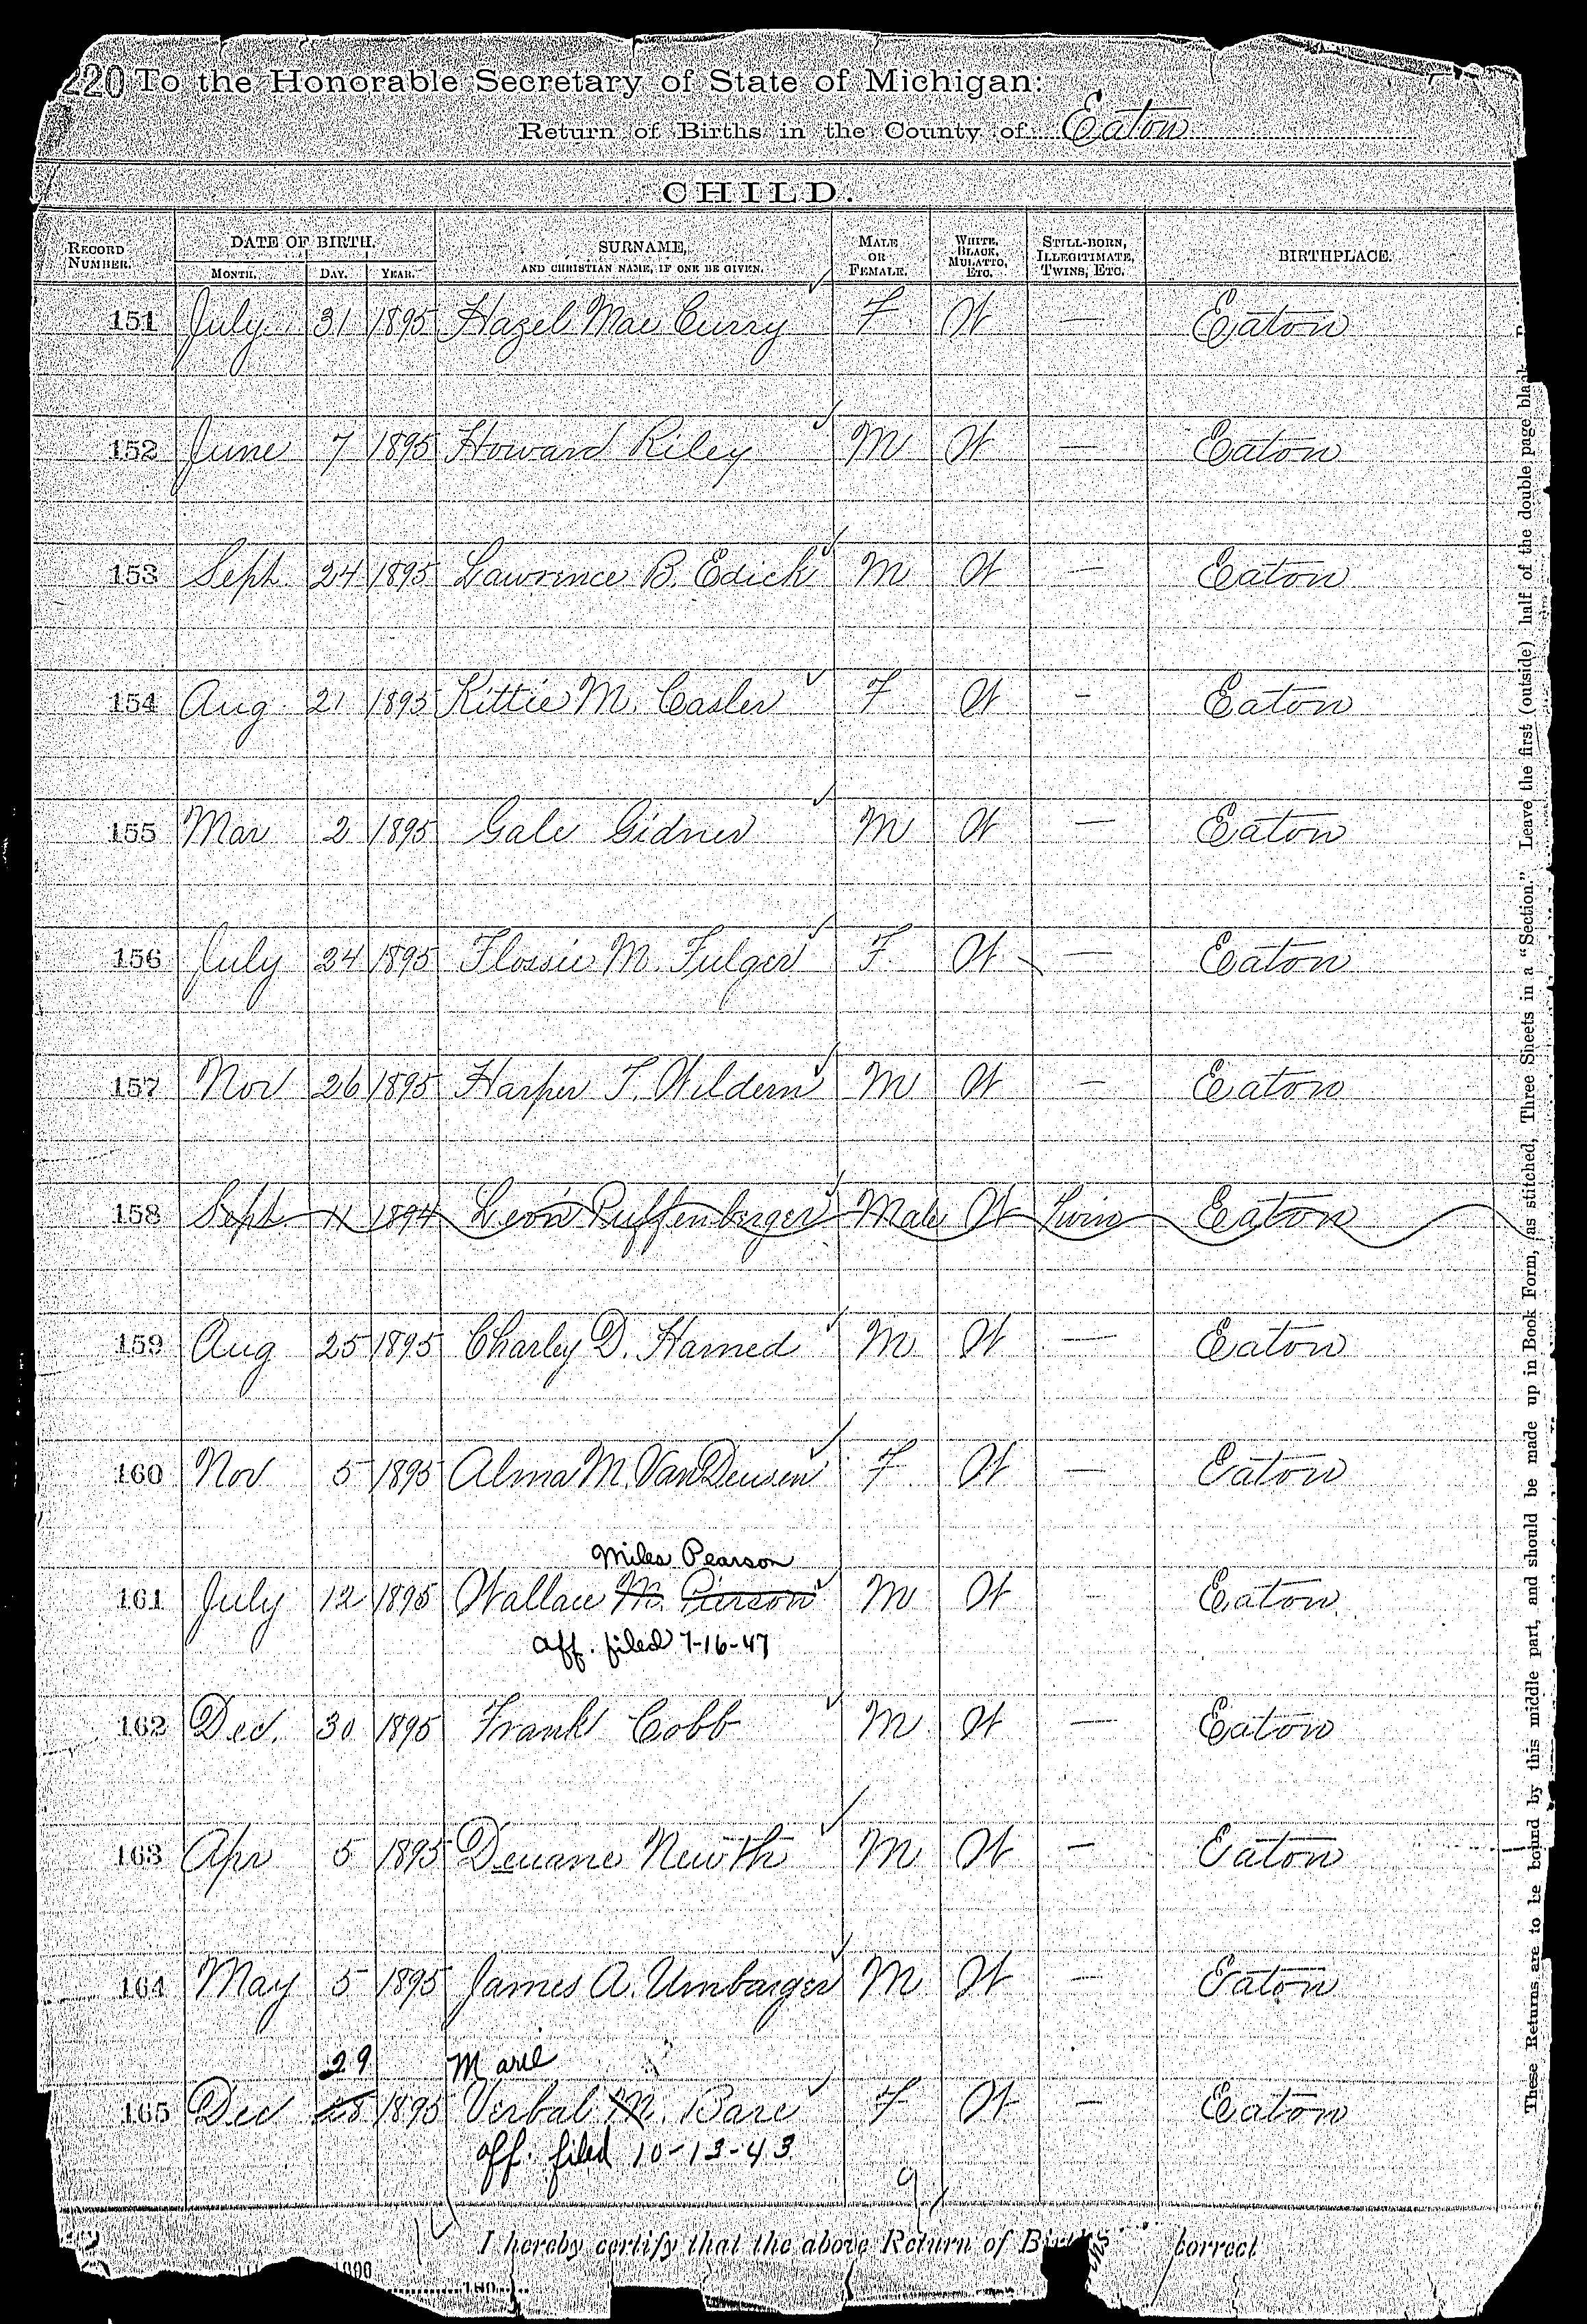 220 To the Honorable Secretary of State of Michigan:
Return of Births in the County of Eaton
CHILD.
RECORD NUMBER. DATE OF BIRTH. MONTH. DAY. YEAR. SURNAME, AND CHRISTIAN NAME, IF ONE BE GIVEN. MALE OR FEMALE. WHITE, BLACK, MULATTO, ETC. STILL-BORN, ILLEGITIMATE, TWINS, ETC. BIRTHPLACE.
151 July 31 1895 Hazel Mae Curry F W — Eaton
152 June 7 1895 Howard Riley M W — Eaton
153 Sept. 24 1895 Lawrence B. Edick M W — Eaton
154 Aug 21 1895 Kittie M. Casler F W - Eaton
155 Mar 2 1895 Gale Gidner M W — Eaton
156 July 24 1895 Flossie M. Fulger F W — Eaton
157 Nov 26 1895 Harper T. Wildern M W — Eaton
158 Sept 11 1894 Leon Puffenberger Male W Twin Eaton
159 Aug 25 1895 Charley D. Harned M W — Eaton
160 Nov 5 1895 Alma M. VanDeusen F W — Eaton
Miles Pearson
161 July 12 1895 Wallace M. Pierson M W - Eaton
aff. filed 7-16-47
162 Dec. 30 1895 Frank Cobb M W — Eaton
163 Apr 5 1895 Deuane Newth M W — Eaton
164 May 5 1895 James A. Umbarger M W — Eaton
29 Marie
165 Dec 28 1895 Verbal M. Bare F W — Eaton
aff. filed 10-13-43
9
I hereby certify that the above Return of Births correct
180
These Returns are to be bound by this middle part, and should be made up in Book Form, as stitched, Three Sheets in a "Section." Leave the first (outside) half of the double page blank